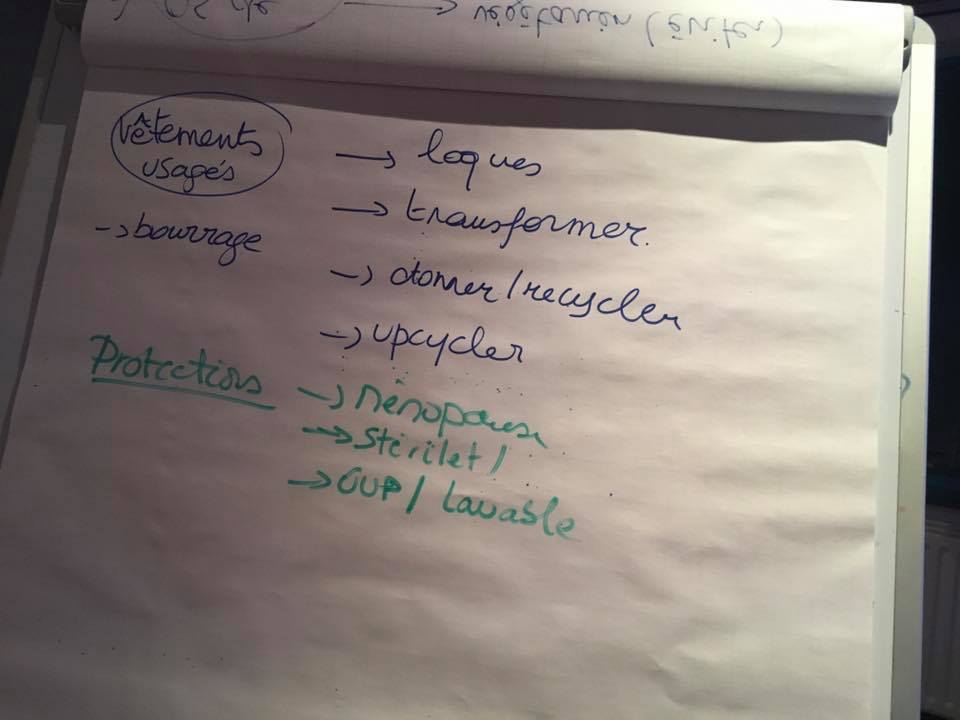 → végétarien (éviter)
vêtements → loques
usagés
→ transformer.
→ bourrage
→ donner/recycler
→ upcycler
Protections → Ménopause
→ Stérilet /
→ CUP / Lavable